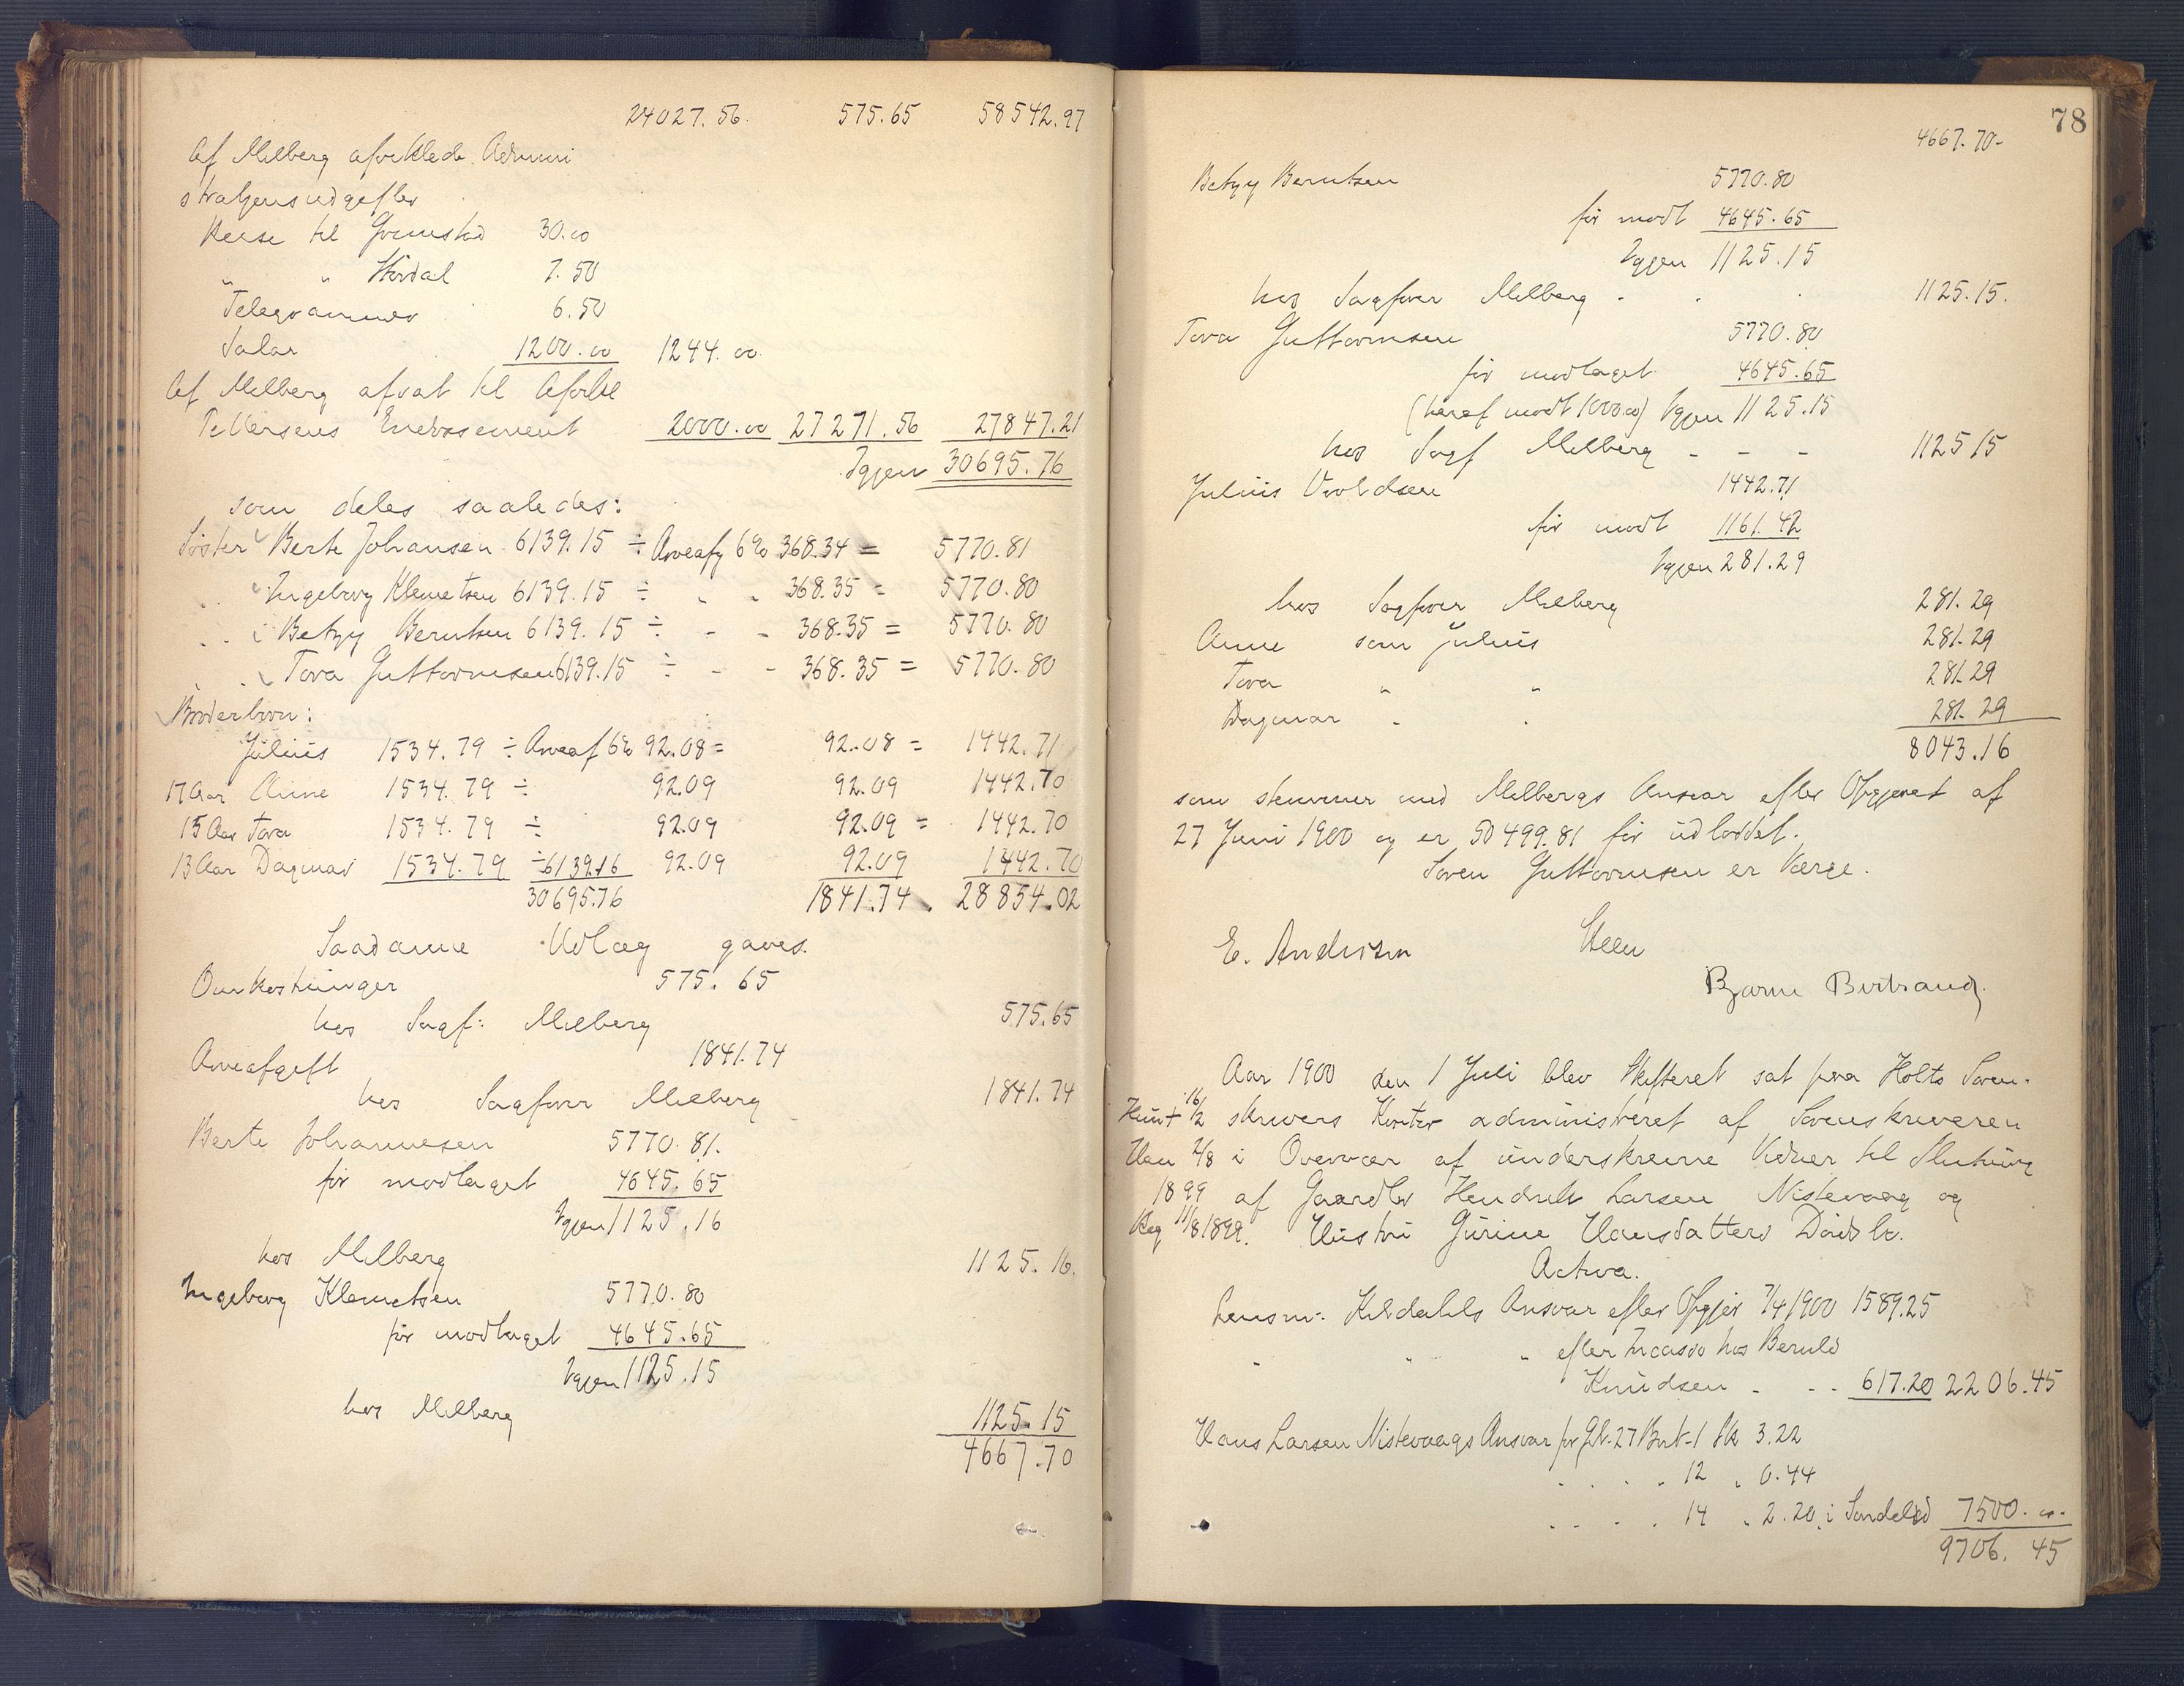 24027.56. 575.65 58542.97
Af Melberg afviklede Admini
strationsudgifter
Reise til Grimstad 30.00
" " Hördal 7.50
Telegrammer 6.50
Salær 1200.00 1244.00
Af Melberg afsat til Afvikl
Pettersens Endossement 2000.00 27271.56 27847.21
Igjen 30695.76
som deles saaledes:
Söster Berte Johansen 6139.15 ÷ Arveafg 6% 368.34 = 5770.81
" Ingeborg Klemetsen 6139.15 ÷ " " 368.35 = 5770.80
" Betzy Berntsen 6139.15 ÷ - - 368.35 = 5770.80
" Tova Guttormsen 6139.15 ÷ - - 368.35 = 5770.80
Broderbörn:
Julius 1534.79 ÷ Arveaf 6% 92.08 = 92.08 = 1442.71
17 Aar Anne 1534.79 ÷ 92.09 92.09 1442.70
15 Aar Tova 1534.79 ÷ 92.09 92.09 = 1442.70
13 Aar Dagmar 1534.79 ÷ 6139.16 92.09 92.09 1442.70
30695.76 1841.74. 28854.02
Saadanne Udlæg gaves.
Omkostninger 575.65
hos Sagf: Melberg 575.65
Arveafgift 1841.74
hos Sagförer Melberg 1841.74
Berte Johannesen 5770.81.
för modtaget 4645.65
Igjen 1125.16
hos Melberg 1125.16.
Ingeborg Klemetsen 5770.80
för modtaget 4645.65
Igjen 1125.15
hos Melberg 1125.15
4667.70
78
4667.70-
Betzy Berntsen 5770.80
för modt 4645.65
Igjen 1125.15
hos Sagförer Melberg - . . 1125.15.
Tova Guttormsen 5770.80
för modtaget 4645.65
(heraf modt 1000.00) Igjen 1125.15
hos Sagf Melberg - - - 1125 15
Julius Vroldsen 1442.71
för modt 1161.42
Igjen 281.29
hos Sagförer Melberg 281.29
Anne som Julius 281.29
Tova " " 281.29
Dagmar - . 281.29
8043.16
som stemmer med Melbergs Ansvar efter Opgjöret af
27 Juni 1900 og er 50499.81 för udloddet.
Sören Guttormsen er Værge.
E. Andersen Steen
Bjarne Bertrand.
Aar 1900 den 1 Juli blev Skifteret sat paa Holts Soren-
Kunt 16/2 skrivers Kontor administreret af Sorenskriveren
Han 2/8 i Overvær af underskrevne Vidner til Slutning
1899 af Gaardbr Hendrik Larsen Nistevaag og
Reg 11/8 1899. Hustru Gurine Hansdatters Dödsbo.
Activa.
Lensm: Kildahls Ansvar efter Opgjör 7/4 1900 1589.25
- " " efter Incasso hos Beruld
Knudsen - - - 617.20 2206.45
Hans Larsen Nistevaags Ansvar for GN. 27 Brt. 1 Sk 3.22
. . . . 12 " 0.44
. . . . 14 " 2.20 i Söndeled 7500.00.
9706.45